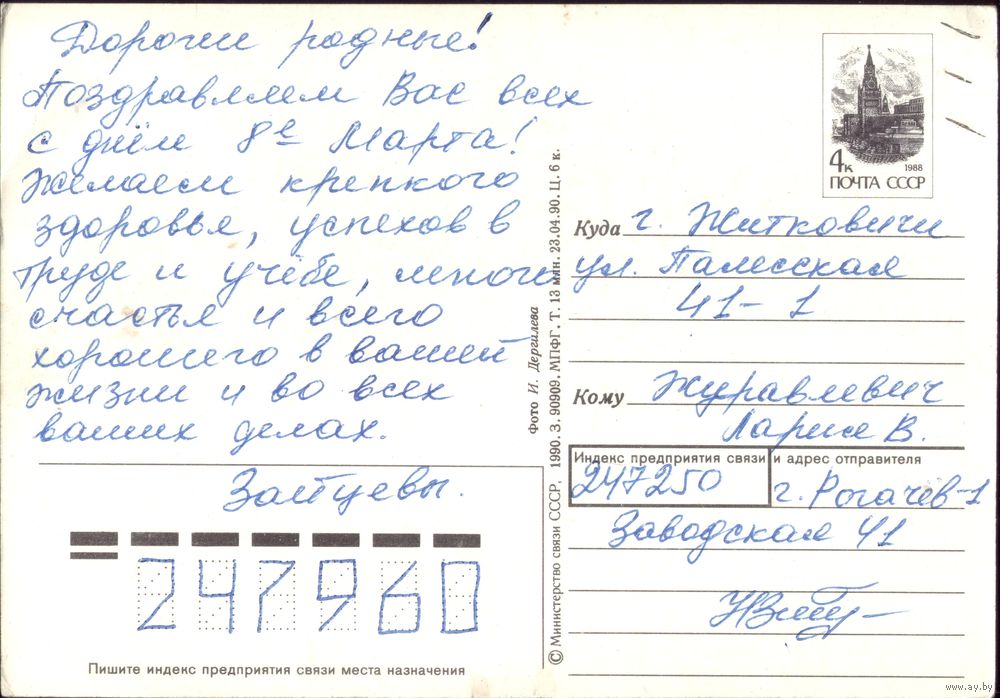 Дороги родные!
Поздравляем Вас всех
с днём 8е Марта!
Желаем крепкого
здоровья, успехов в
труде и учёбе, много
счастья и всего
хорошего в вашей
жизни и во всех
ваших делах.
Зайцевы.
247960
Пишите индекс предприятия связи места назначения
Фото И. Дергилева
© Министерство связи СССР. 1990. З. 90909. МПФГ. Т. 13 млн. 23.04.90. Ц. 6 к.
4к 1988
ПОЧТА СССР
Куда г. Житковичи
ул. Палесская
41-1
Кому Журавлевич
Ларисе В.
Индекс предприятия связи и адрес отправителя
247250 г. Рогачёв-1
Заводская 41
www.ay.by